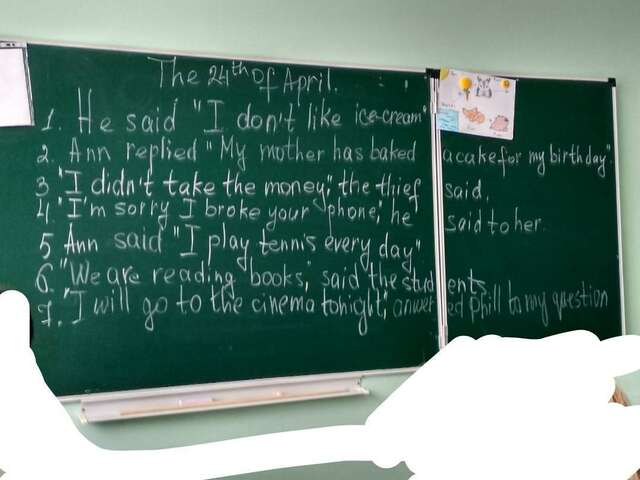 The 24th of April.
1. He said "I don't like ice-cream"
2. Ann replied "My mother has baked a cake for my birthday".
3 "I didn't take the money", the thief said.
4. "I'm sorry I broke your phone", he said to her.
5 Ann said "I play tennis every day"
6. "We are reading books", said the students
7. "I will go to the cinema tonight", answered Phill to my question